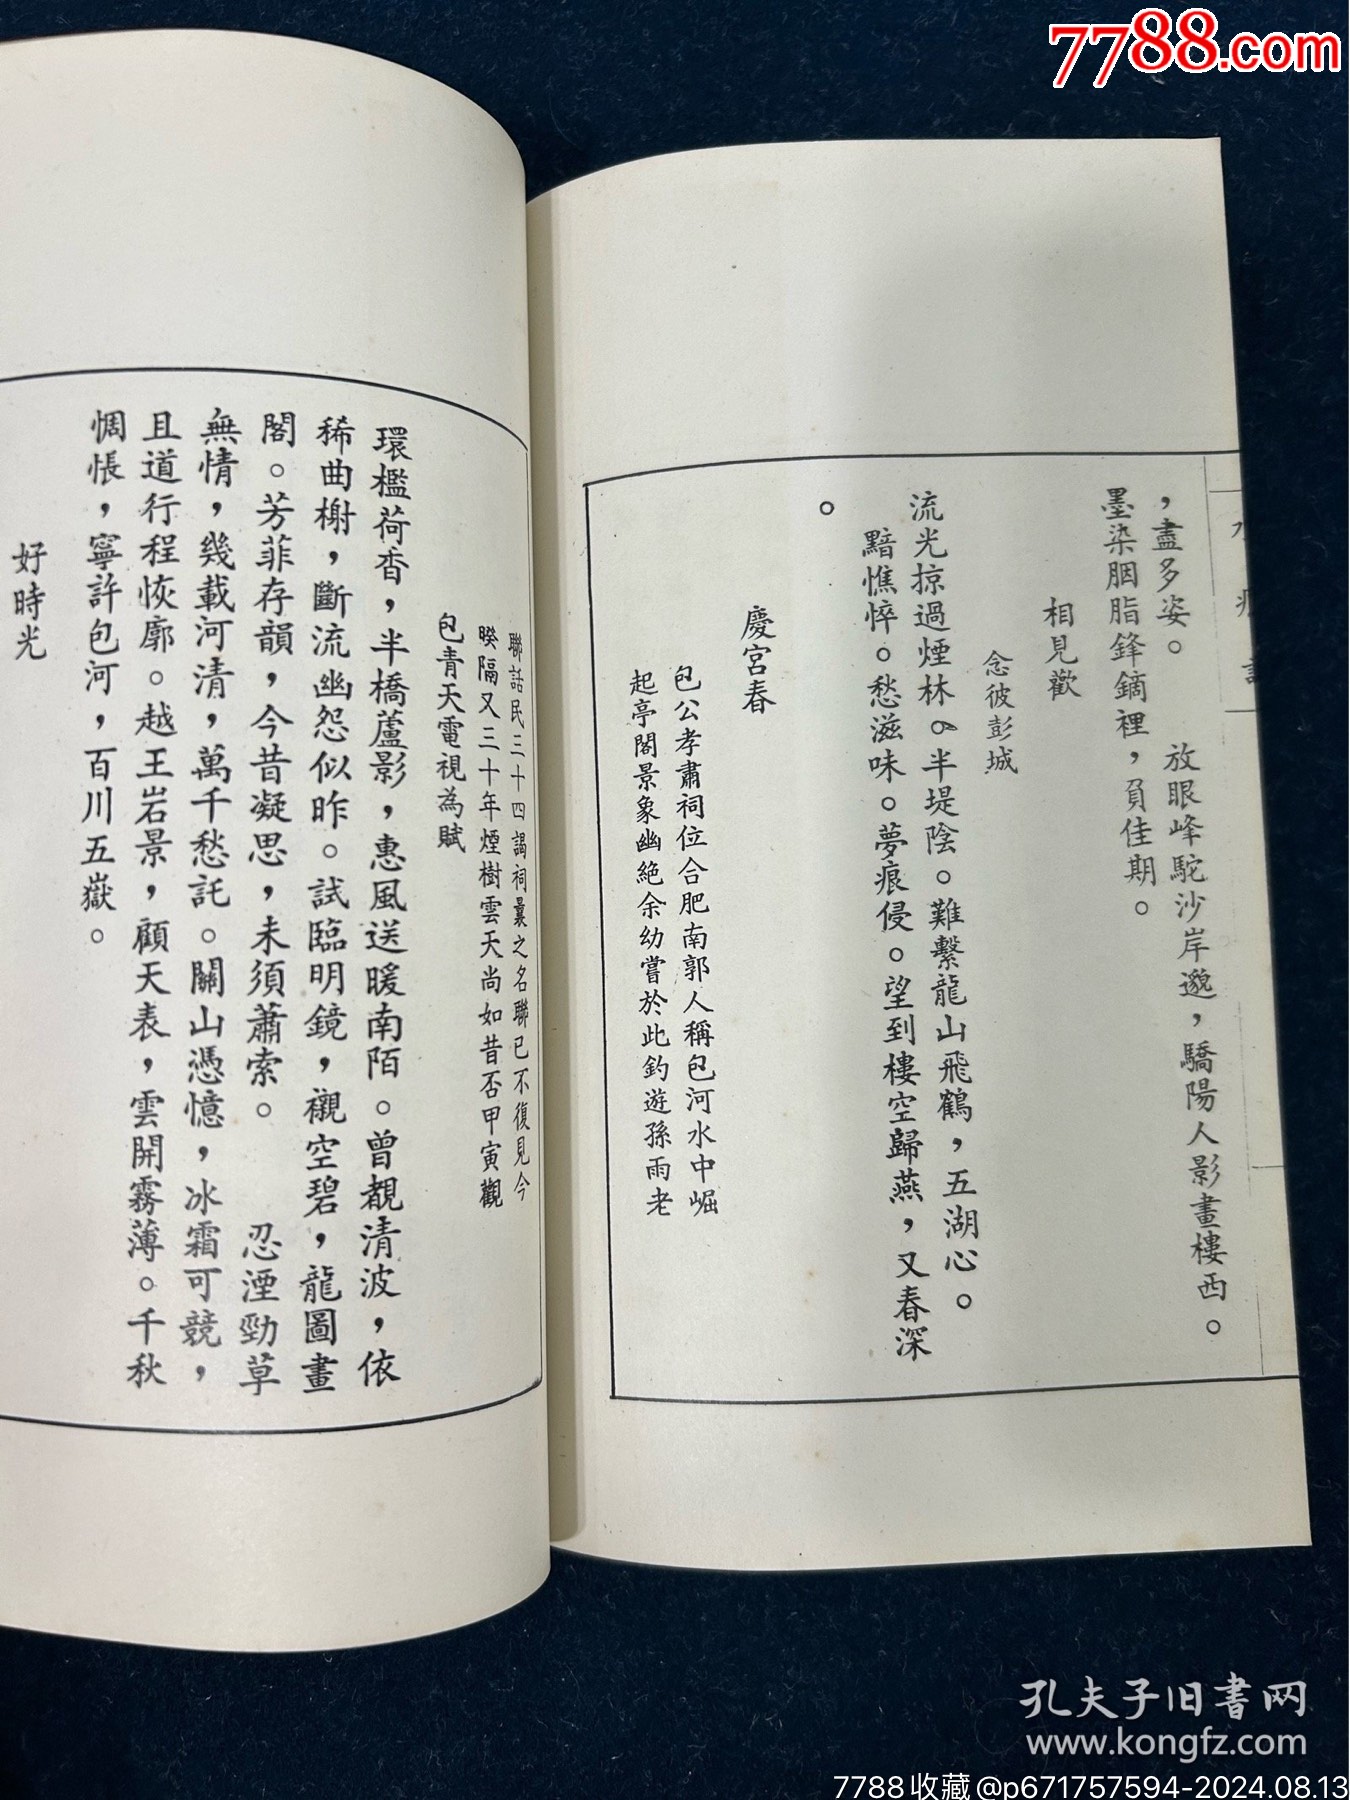 7788.com
，盡多姿。　　放眼峰駝沙岸邈，驕陽人影畫樓西。
墨染胭脂鋒鏑裡，負佳期。
相見歡
念彼彭城
流光掠過煙林。半堤陰。難繫龍山飛鶴，五湖心。
黯憔悴。愁滋味。夢痕侵。望到樓空歸燕，又春深
。
慶宮春
包公孝肅祠位合肥南郭人稱包河水中崛
起亭閣景象幽絕余幼嘗於此釣遊孫雨老
聯話民三十四謁祠曩之名聯已不復見今
暌隔又三十年煙樹雲天尚如昔否甲寅觀
包青天電視為賦
環檻荷香，半橋蘆影，惠風送暖南陌。曾覩清波，依
稀曲榭，斷流幽怨似昨。試臨明鏡，襯空碧，龍圖畫
閣。芳菲存韻，今昔凝思，未須蕭索。　　忍湮勁草
無情，幾載河清，萬千愁託。關山憑憶，冰霜可競，
且道行程恢廓。越王岩景，顧天表，雲開霧薄。千秋
惆悵，寧許包河，百川五嶽。
好時光
孔夫子旧書网
www.kongfz.com
7788收藏@p671757594-2024.08.13